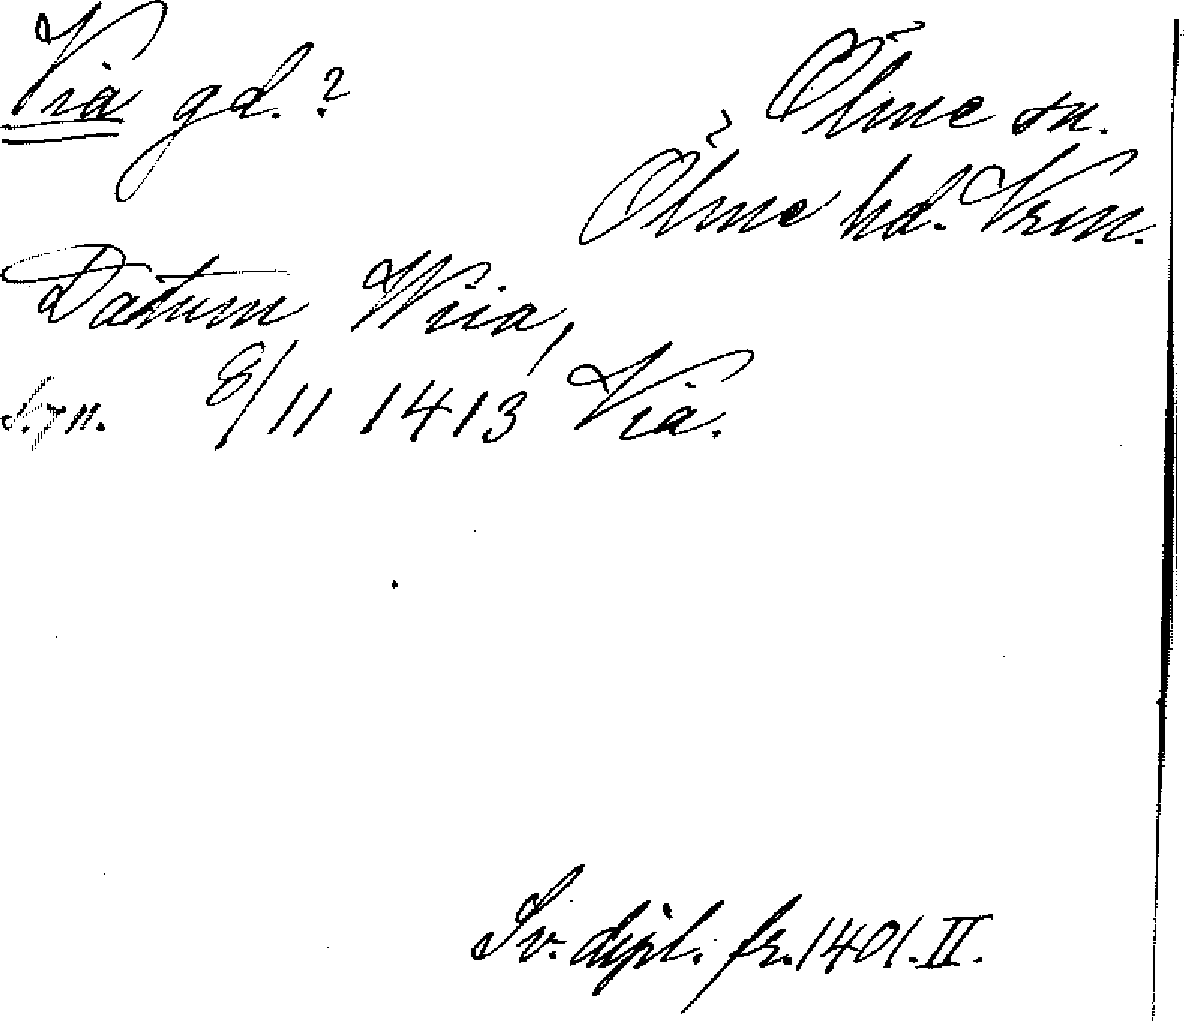 Via gd.?
Ölme sn.
Ölme hd. Vrm.
Datum Wiia,
8/11 1413 Via.
Sv. dipl. fr. 1401. II.